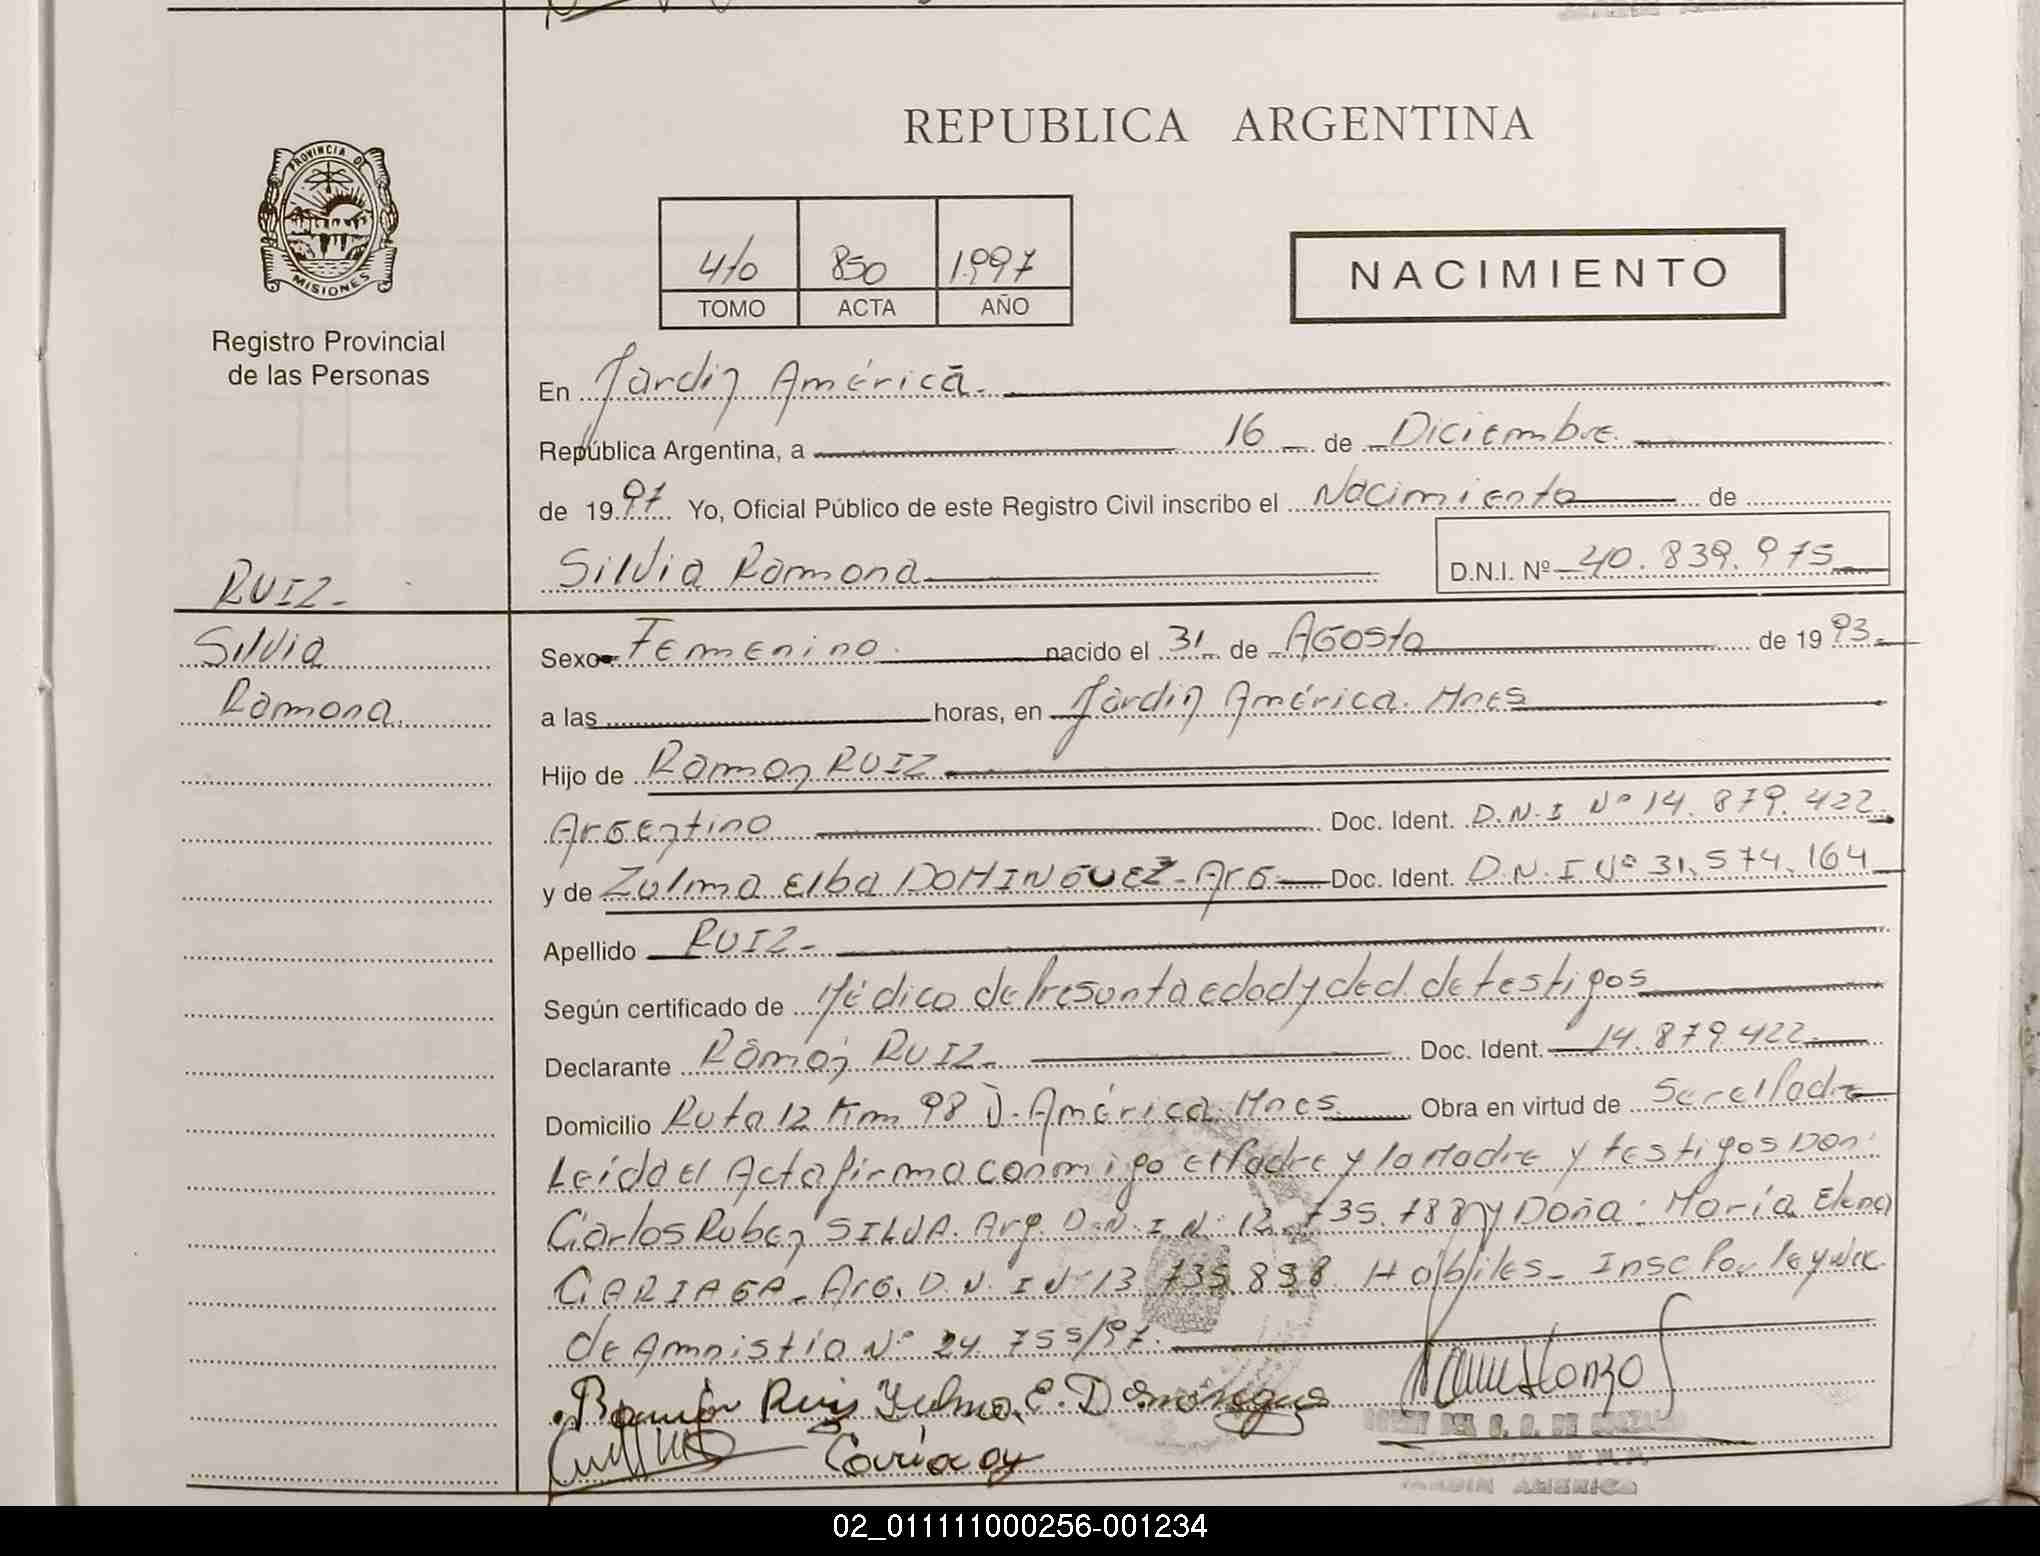 REPUBLICA ARGENTINA
PROVINCIA DE
MISIONES
Registro Provincial
de las Personas
4/0 850 1.997
TOMO ACTA AÑO
NACIMIENTO
En Jardin América.
República Argentina, a 16 de Diciembre.
de 1997 Yo, Oficial Público de este Registro Civil inscribo el Nacimiento de
Silvia Ramona D.N.I. Nº 40.839.975
RUIZ
Silvia
Ramona
Sexo Femenino. nacido el 31 de Agosto de 1993.
a las horas, en Jardin América. Mnes
Hijo de Ramon RUIZ
Argentino Doc. Ident. D.N.I Nº 14.879.422.
y de Zulma Elba DOMINGUEZ - Arg - Doc. Ident. D.N.I Nº 31.574.164
Apellido RUIZ-
Según certificado de Médico de Presunta edad y ded de testigos
Declarante Ramón RUIZ Doc. Ident. 14.879.422
Domicilio Ruta 12 Km 98 J. América Mnes Obra en virtud de Ser el Padre
Leida el Acta firma conmigo el Padre y la Madre y testigos Don:
Carlos Ruben SILVA. Arg. D.N.I.N: 12.735.788 y Doña: María Elena
CARIAGA. Arg. D.N.I Nº 13 735.898 Hábiles - Insc Por ley
de Amnistía Nº 24 755/97.
Ramón Ruiz Zulma E. Dominguez
Cariagy
JARDIN AMERICA
02_011111000256-001234